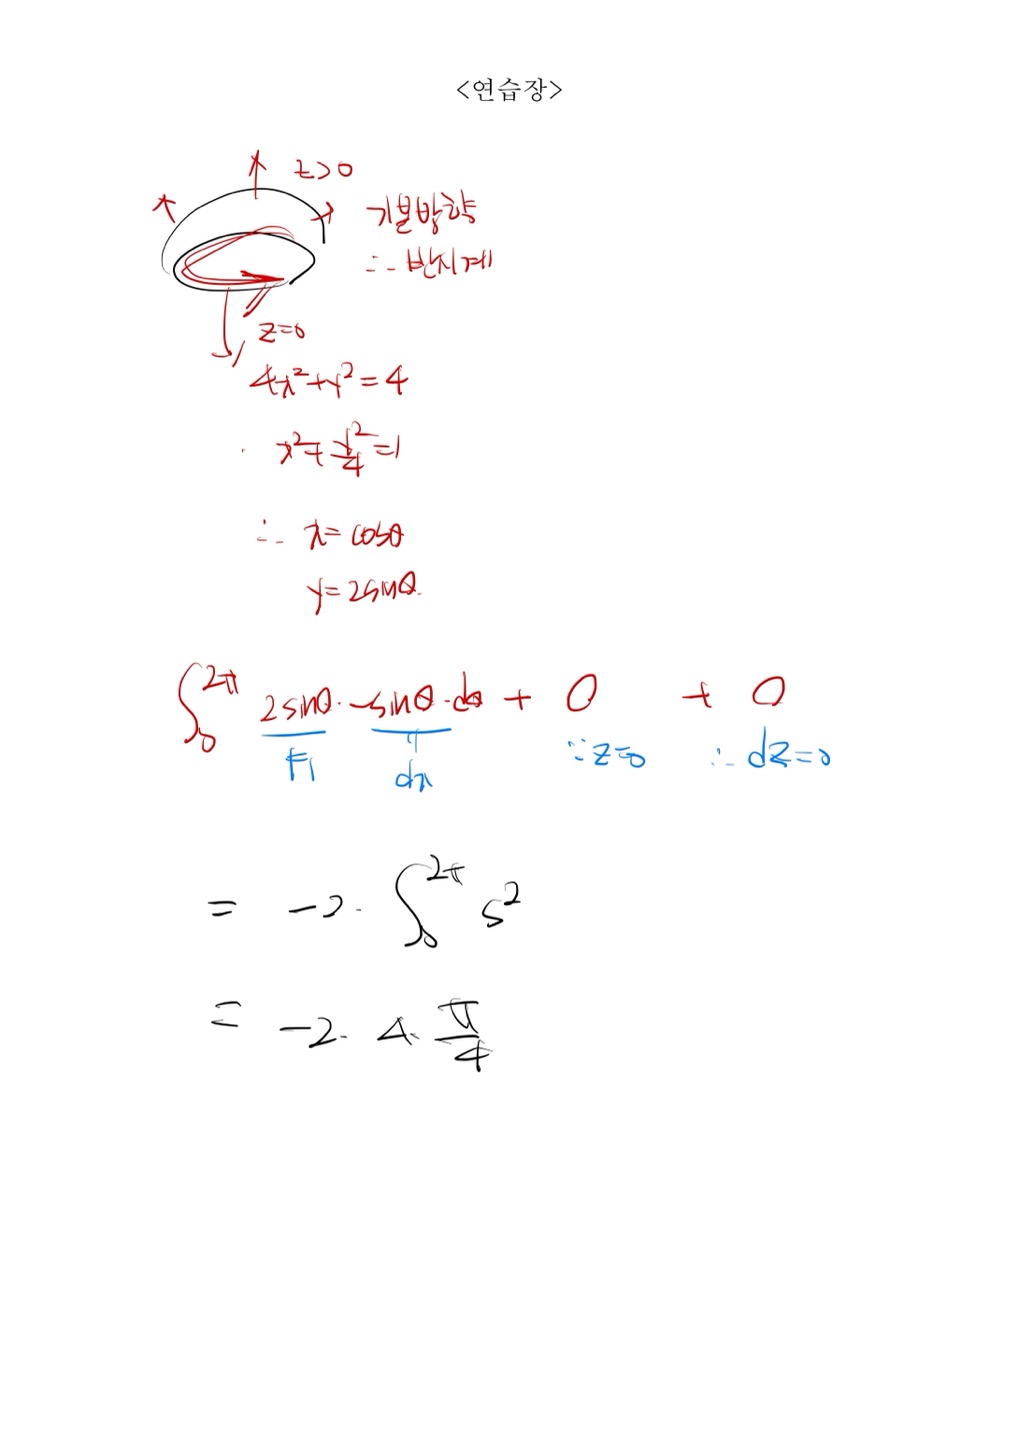 <연습장>
z>0
기본방향
∴ 반시계
z=0
4x²+y²=4
x²+y²/4=1
∴ x=cosθ
y=2sinθ
∫₀^2π 2sinθ·-sinθ·dθ + 0 + 0
F₁ dx ∵z=0 ∴dz=0
= -2·∫₀^2π s²
= -2·4·π/4